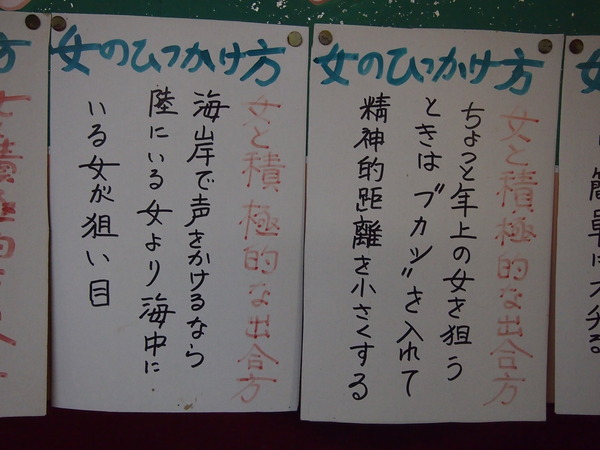 女のひっかけ方
女と積極的な出合方
ちょっと年上の女を狙う
ときはブカツ〃を入れて
精神的距離を小さくする
女のひっかけ方
女と積極的な出合方
海岸で声をかけるなら
陸にいる女より海中に
いる女が狙い目
方